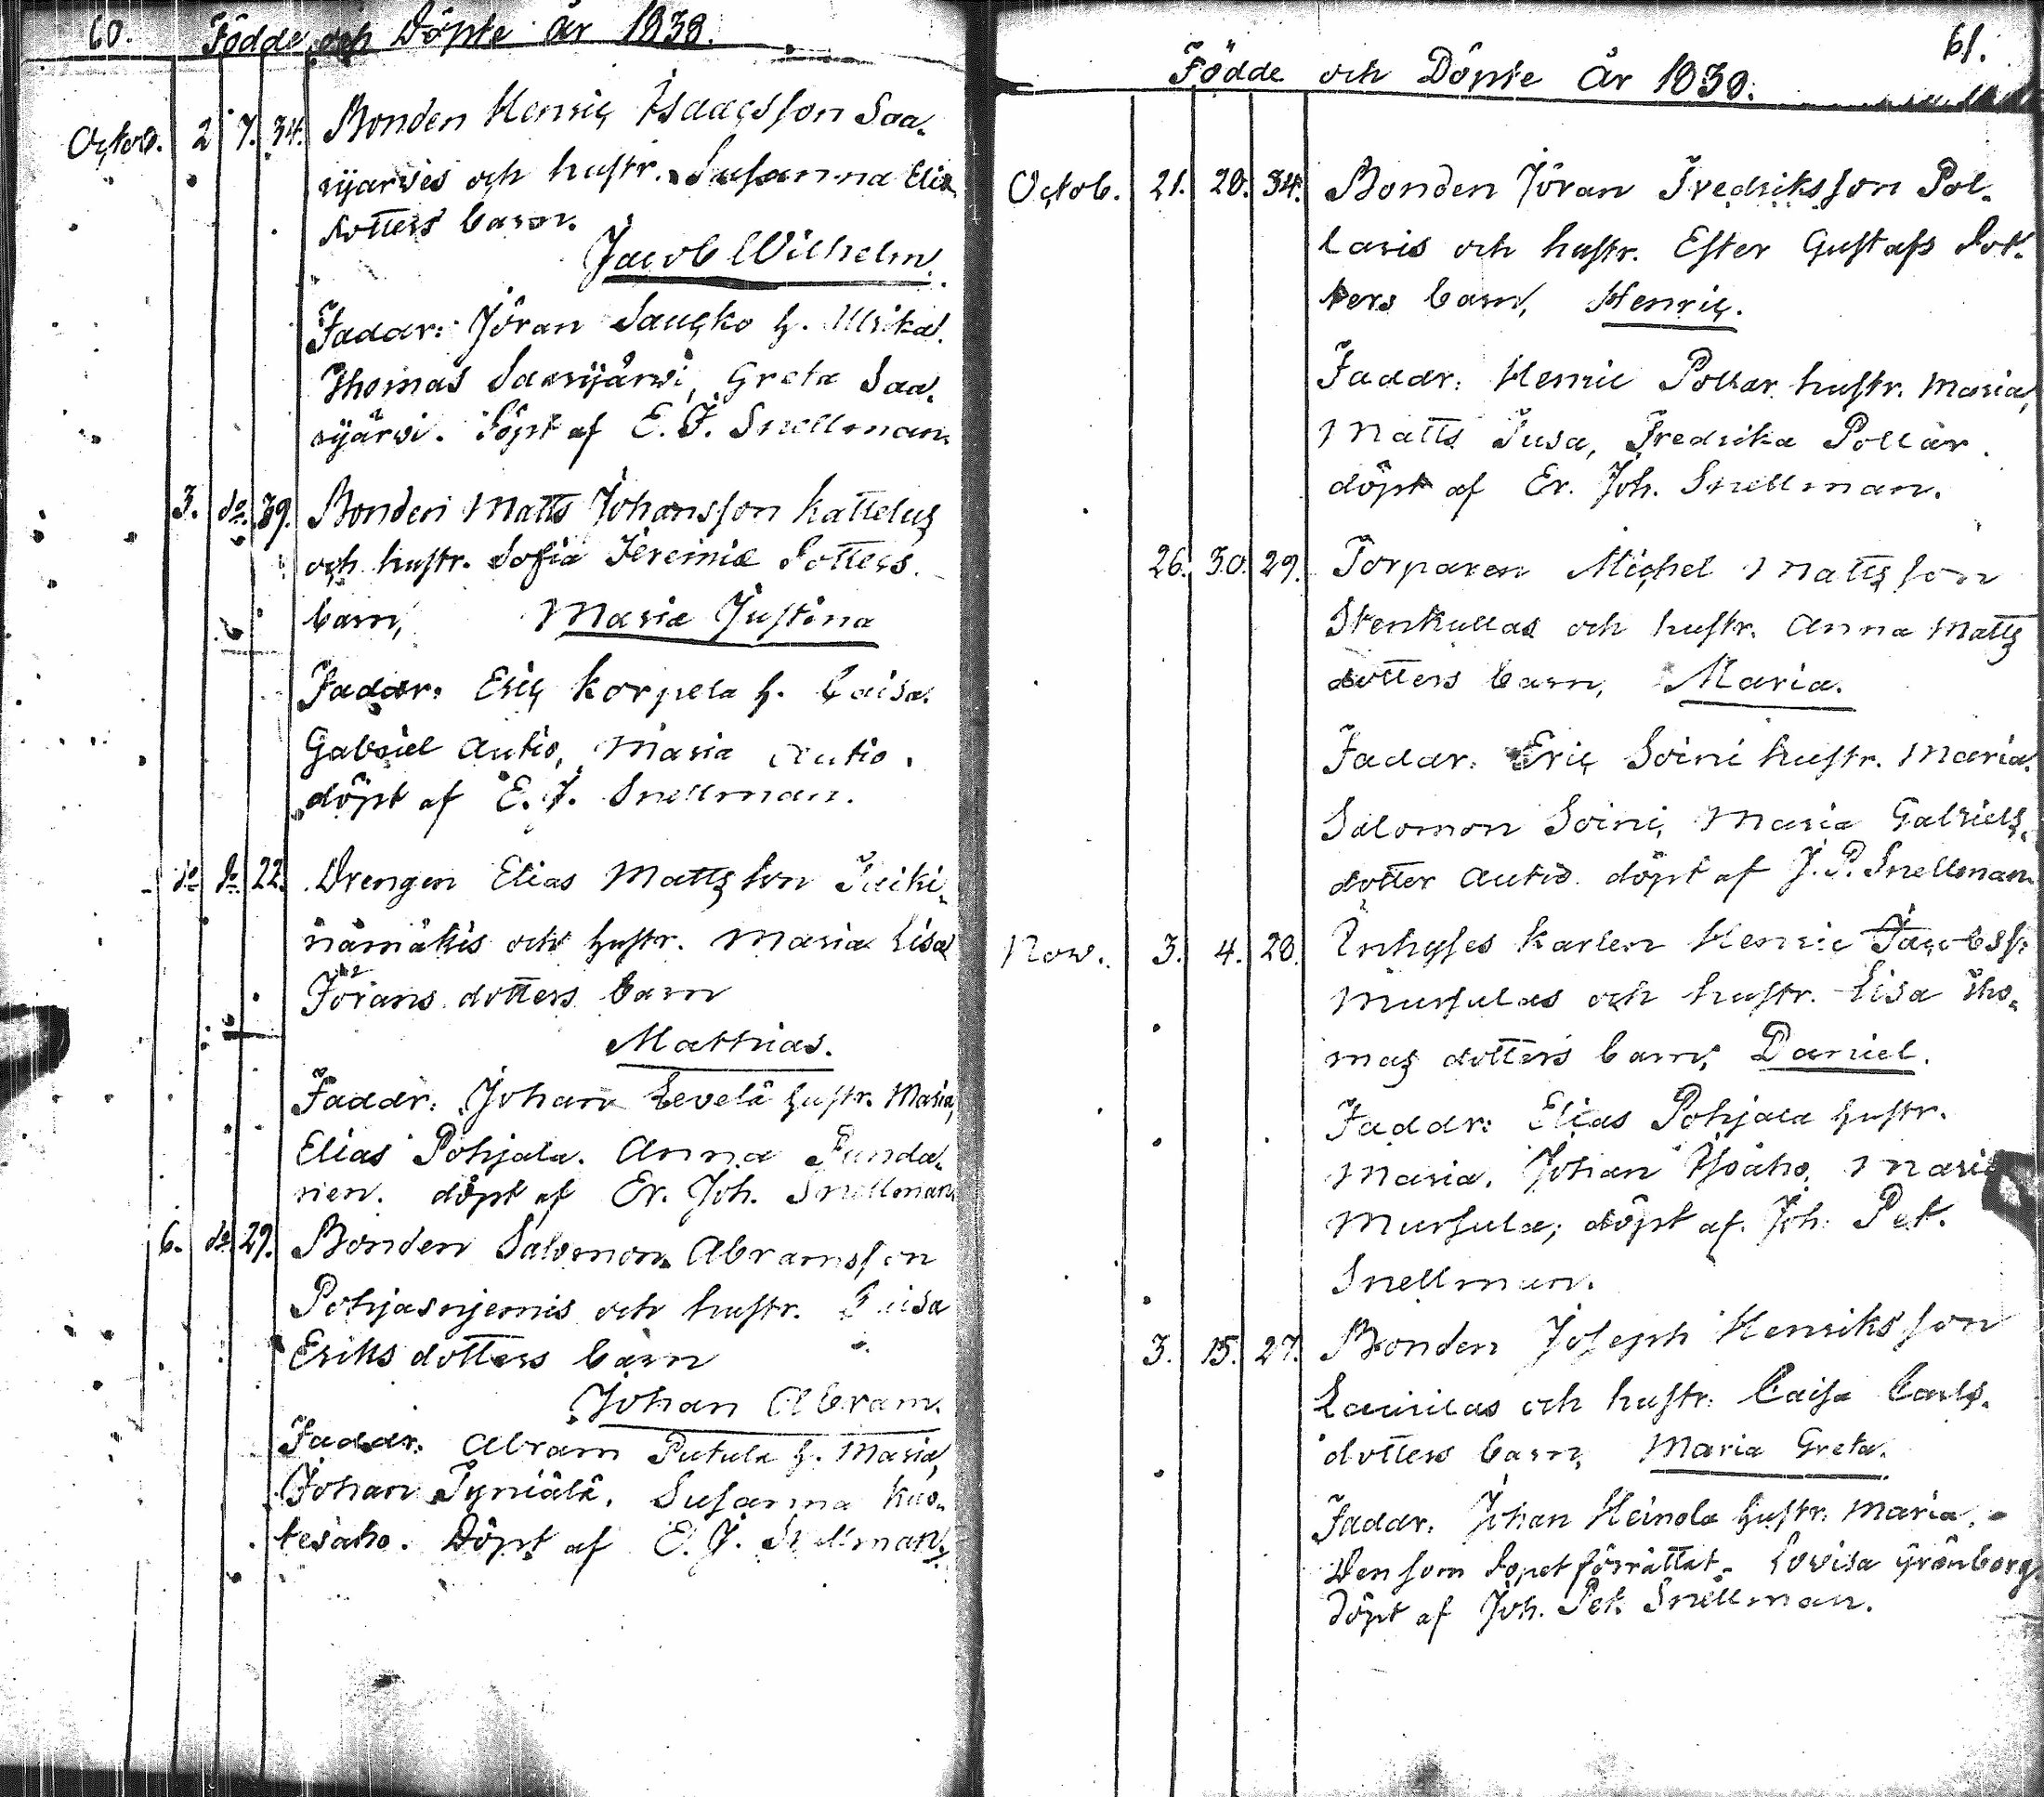 60. Födde och Döpte år 1838.
Octob. 2 7. 34. Bonden Henric Isaacsson Saa-
rijärvis och hustr. Susanna Elia
dotters barn.
Jacob Wilhelm.
Faddr: Jöran Saucko h. Ulrika.
Thomas Saarijärvi, Greta Saa-
rijärvi. Döpt af E. J. Snellman.
3. do. 39. Bonden Matts Johansson Kattelus
och hustr. Sofia Jeremiæ Dotters
barn, Maria Justina
Faddr: Eric Korpela h. Caisa.
Gabriel Autio, Maria Autio.
döpt af E. J. Snellman.
do do 22. Drengen Elias Mattsson
och hustr. Maria Lisa
Jörans dotters barn
Matthias.
Faddr: Johan Levelä hustr. Maria,
Elias Pohjala. Anna Junda-
nen. döpt af Er. Joh. Snellman
6. do 29. Bonden Salomon Abramsson
och hustr.
Eriks dotters barn
Johan Abram.
Faddr: Abram Putula h. Maria,
Johan Tyniälä. Susanna Kuo-
tesaho. Döpt af E. J. Snellman.
61.
Födde och Döpte År 1838.
Octob. 21. 28. 34. Bonden Jöran Fredriksson Pol-
laris och hustr. Ester Gustafs Dot-
ters barn, Henric.
Faddr: Henric Pollar hustr. Maria,
Matts Tusa, Fredrika Pollar.
döpt af Er. Joh. Snellman.
26. 30. 29. Torparen Michel Mattsson
Stenkullas och hustr. Anna Matts
dotters barn, Maria.
Faddr: Eric Soini hustr. Maria.
Salomon Soini, Maria Gabriels-
dotter Autio. döpt af J. P. Snellman
Nov. 3. 4. 28. Inhyses karlen Henric Jacobss:
Mursulas och hustr. Lisa Tho-
mas dotters barn, Daniel.
Faddr: Elias Pohjala hustr.
Maria. Johan Isoaho, Maria
Mursula; döpt af. Joh: Pet.
Snellman.
3. 15. 27. Bonden Joseph Henriksson
Laurilas och hustr: Caisa Carls-
dotters barn, Maria Greta.
Faddr: Johan Heinola hustr: Maria. -
Den som Dopet förrättat - Lovisa Grönborg
döpt af Joh. Pet. Snellman.